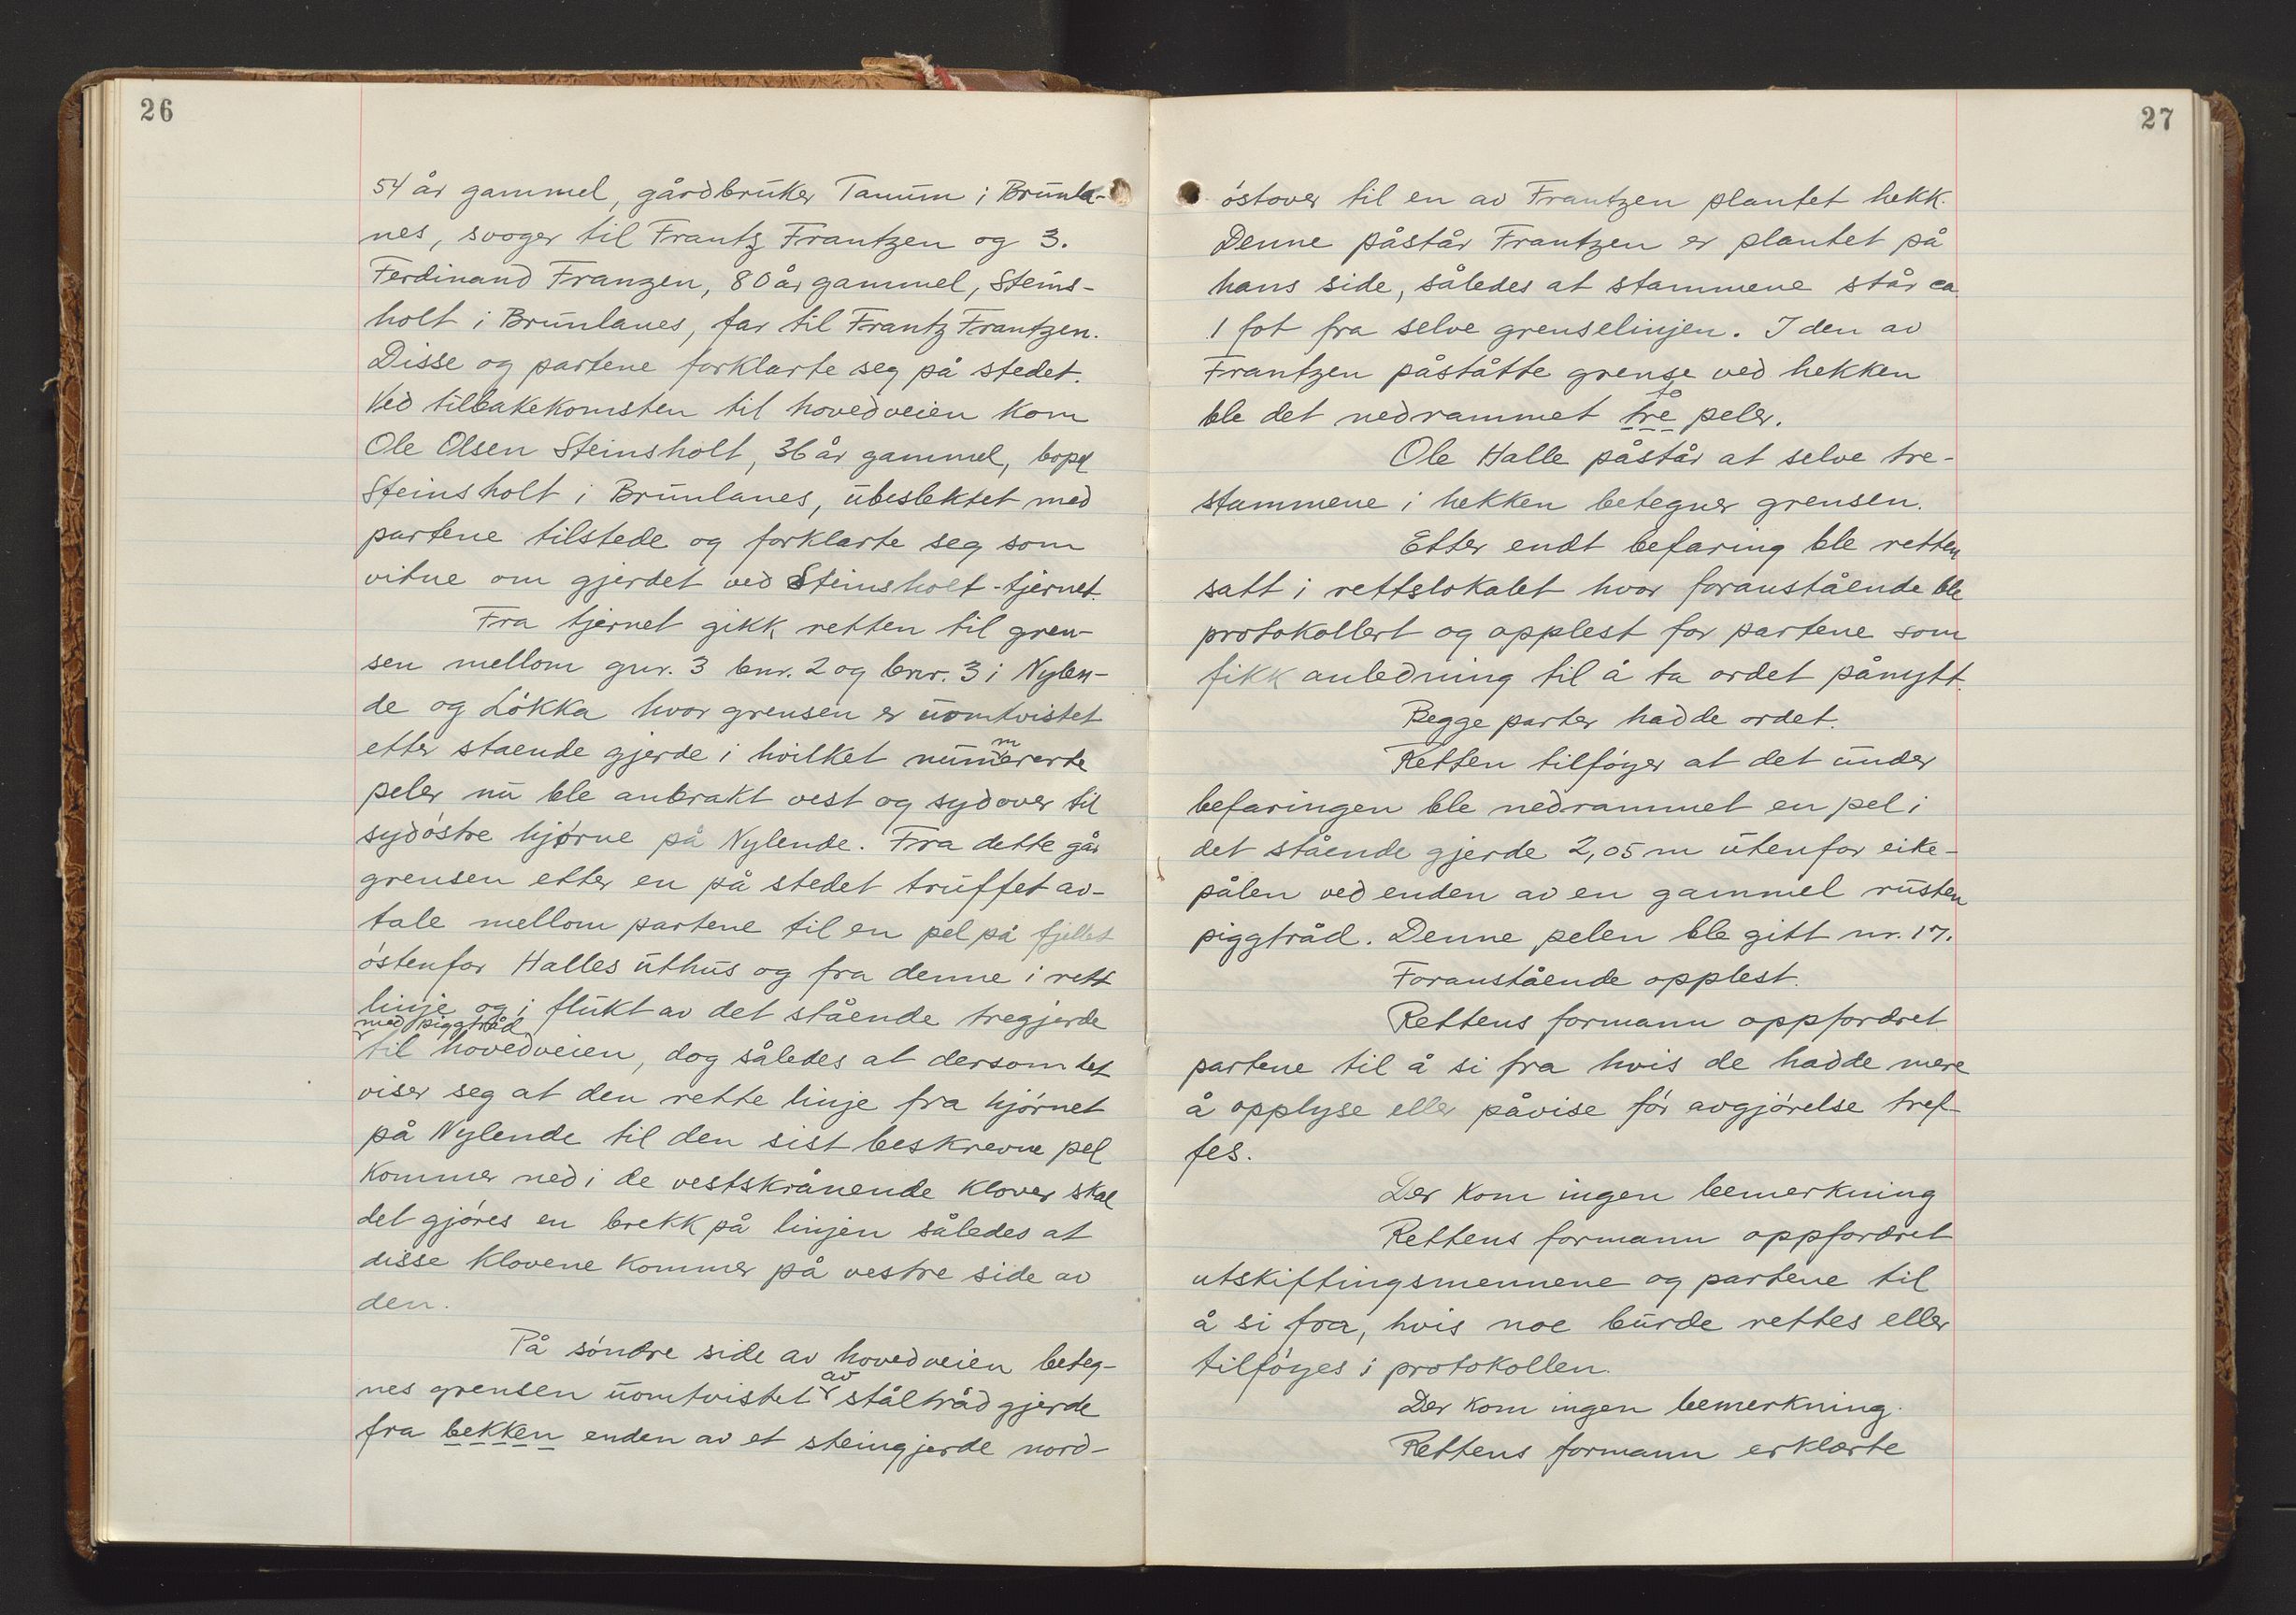 26
54 år gammel, gårdbruker Tanum i Brunla-
nes, svoger til Frantz Frantzen og 3.
Ferdinand Franzen, 80 år gammel, Steins-
holt i Brunlanes, far til Frantz Frantzen.
Disse og partene forklarte seg på stedet.
Ved tilbakekomsten til hovedveien kom
Ole Olsen Steinsholt, 36 år gammel, bopel
Steinsholt i Brunlanes, ubeslektet med
partene tilstede og forklarte seg som
vitne om gjerdet ved Steinsholt-tjernet.
Fra tjernet gikk retten til gren-
sen mellom gnr. 3 bnr. 2 og bnr. 3 i Nylen-
de og Løkka hvor grensen er uomtvistet
etter staende gjerde i hvilket nummererte
peler nu ble anbrakt vest og sydover til
sydøstre hjørne på Nylende. Fra dette går
grensen etter en på stedet truffet av-
tale mellom partene til en pel på fjellet
østenfor Halles uthus og fra denne i rett
linje og i flukt av det stående tregjerde
med piggtråd
til hovedveien, dog således at dersom det
viser seg at den rette linje fra hjørnet
på Nylende til den sist beskrevne pel
kommer ned i de vestskrånende klover skal
det gjøres en brekk på linjen således at
disse klovene kommer på vestre side av
den.
På søndre side av hovedveien beteg-
nes grensen uomtvistet av ståltrådgjerde
fra bekken enden av et steingjerde nord-
27
østover til en av Frantzen plantet hekk.
Denne påstår Frantzen er plantet på
hans side, således at stammene står ca.
1 fot fra selve grenselinjen. I den av
Frantzen påståtte grense ved hekken
to
ble det nedrammet tre peler.
Ole Halle påstår at selve tre-
stammene i hekken betegner grensen.
Etter endt befaring ble retten
satt i rettslokalet hvor foranstående ble
protokollert og opplest for partene som
fikk anledning til å ta ordet pånytt.
Begge parter hadde ordet.
Retten tilføyer at det under
befaringen ble nedrammet en pel i
det stående gjerde 2,05 m utenfor eike-
pålen ved enden av en gammel rusten
piggtråd. Denne pelen ble gitt nr. 17.
Foranstående opplest.
Rettens formann oppfordret
partene til å si fra hvis de hadde mere
å opplyse eller påvise før avgjørelse tref-
fes.
Der kom ingen bemerkning
Rettens formann oppfordret
utskiftingsmennene og partene til
å si fra, hvis noe burde rettes eller
tilføyes i protokollen.
Der kom ingen bemerkning.
Rettens formann erklærte